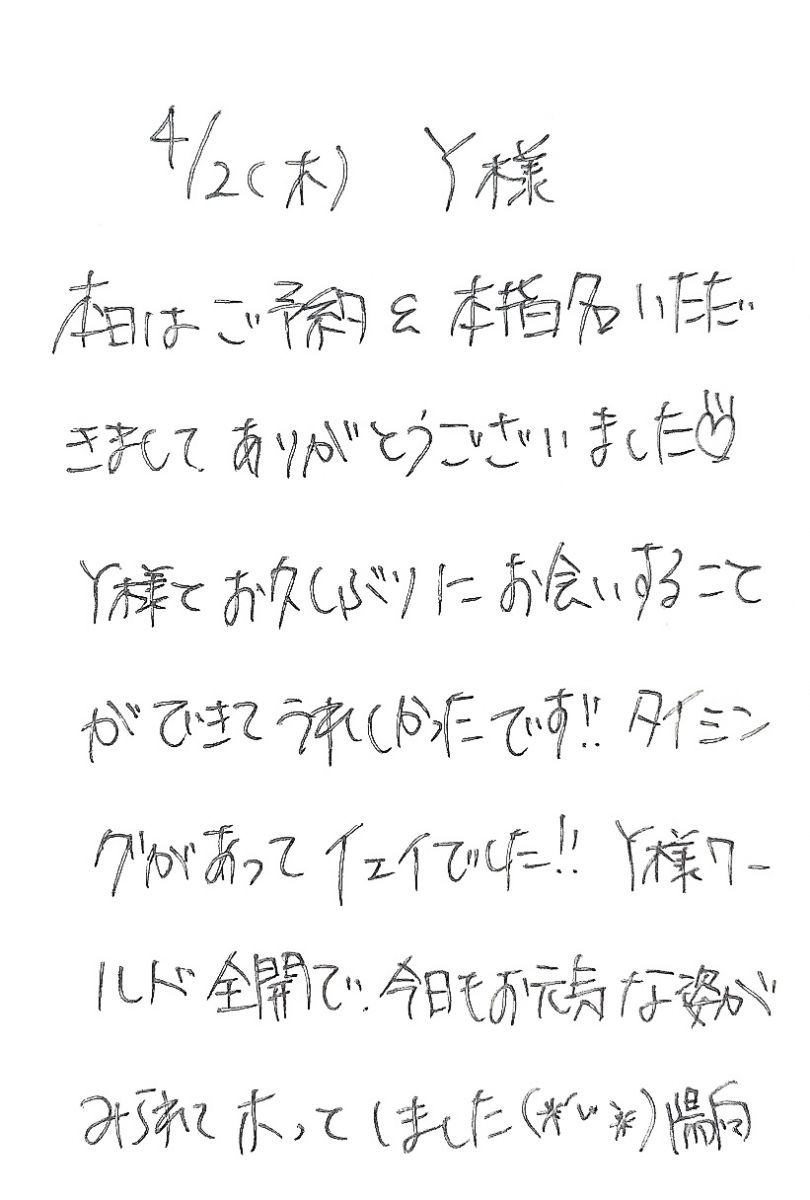 4/2(木) Y様
本日はご予約&本指名いただ
きまして、ありがとうございました♡
Y様とお久しぶりにお会いすること
ができてうれしかったです!! タイミン
グがあってイェイでした!! Y様ワー
ルド全開で、今日もお元気な姿が
みられてホってしました(*ˇᵕˇ*)陽向